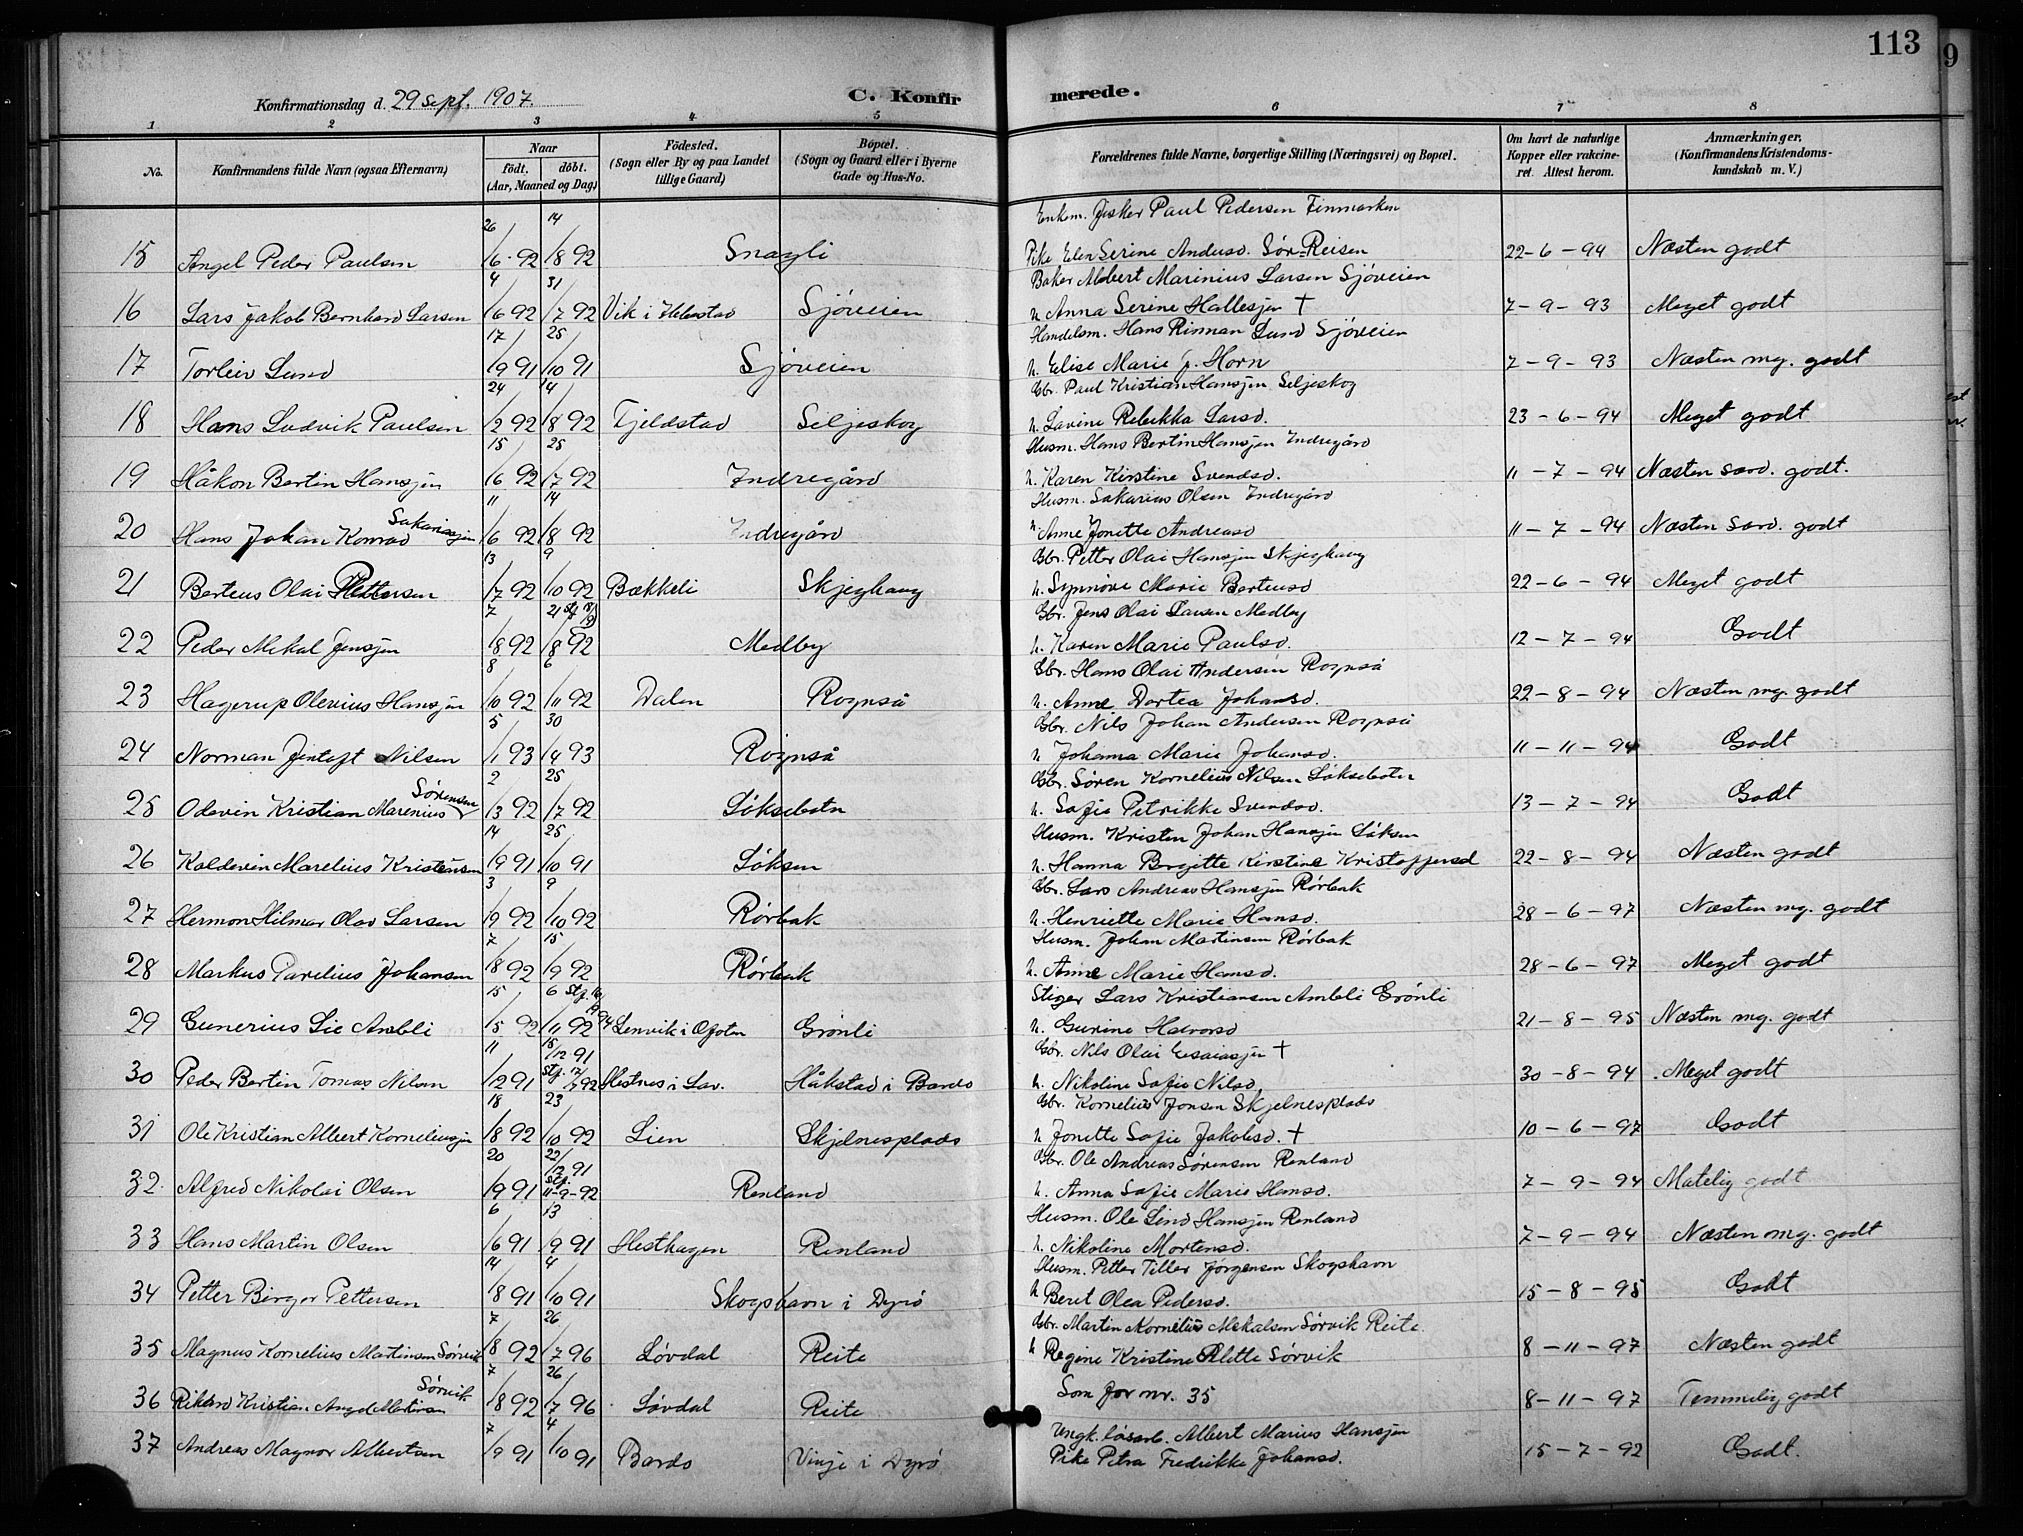 113
9
Konfirmationsdag d. 29 sept. 1907.
C. Konfir
merede.
1 2 3 4 5 6 7 8
No.
Konfirmandens fulde Navn (ogsaa Efternavn)
Naar
født. døbt.
(Aar, Maaned og Dag)
Födested.
(Sogn eller By og paa Landet
tillige Gaard)
Bopæl.
(Sogn og Gaard eller i Byerne
Gade og Hus-No.
Forældrenes fulde Navne, borgerlige Stilling (Næringsvei) og Bopæl.
Om havt de naturlige
Kopper eller vakcine-
ret. Attest herom.
Anmærkninger,
(Konfirmandens Kristendoms-
kundskab m. V.)
Enkem. Fisker Paul Pedersen Finmarken
15 Angel Peder Paulsen 26/6 92 14/8 92 Snagli Pike Elen Serine Andersd. Sør-Reisen 22-6-94 Næsten godt
Baker Albert Marinius Larsen Sjøveien
16 Lars Jakob Bernhard Larsen 4/6 92 31/7 92 Vik i Sjøveien h Anna Serine Hallesjen † 7-9-93 Meget godt
Handelsm. Hans Rinman Lund Sjøveien
17 Torleiv Lund 17/9 91 25/10 91 Sjøveien h. Elise Marie f. Horn 7-9-93 Næsten mg. godt
Gbr. Paul Kristian Hansjen Seljeskog
18 Hans Ludvik Paulsen 24/2 92 14/8 92 Fjeldstad Seljeskog h. Lavine Rebekka Larsd. 23-6-94 Meget godt
Husm. Hans Bertin Hansjen Indregård
19 Håkon Bertin Hansjen 15/6 92 25/7 92 Indregård h. Karen Kirstine Svendsd. 11-7-94 Næsten særd. godt.
Husm. Sakarius Olsen Indregård
20 Hans Johan Konrad Sakariasjen 11/6 92 14/8 92 Indregård h. Anne Jonette Andreasd 11-7-94 Næsten særd. godt
Gbr. Petter Olai Hansjen Skjeghaug
21 Berteus Olai Pettersen 13/7 92 9/10 92 Bækkeli Skjeghaug h. Synnøve Marie Berteusd 22-6-94 Meget godt
Gbr. Jens Olai Larsen Medby
22 Peder Mekal Jensjen 7/8 92 21/8 92 Medby h. Karen Marie Paulsd. 12-7-94 Godt
Gbr. Hans Olai Andersen Rognså
23 Hagerup Olevius Hansjen 8/10 92 6/11 92 Dalen Rognså h. Anne Dortea Johansd. 22-8-94 Næsten mg. godt
Gbr. Nils Johan Andersen Rognså
24 Norman Jentoft Nilsen 5/1 93 30/4 93 Rognså h Johanna Marie Johansd. 11-11-94 Godt
Gbr. Søren Kornelius Nilsen Løksebotn
25 Odevin Kristian Marenius Sørensen 2/13 92 25/7 92 Løksebotn h. Sofie Petrikke Svendsd. 13-7-94 Godt
Husm. Kristen Johan Hansjen Løksen
26 Kaldevin Marelius Kristensen 14/9 91 25/10 91 Løksen h. Hanna Brgitte Kirstine Kristoffersd 22-8-94 Næsten godt
Gbr. Lars Andreas Hansjen Rørbak
27 Hermon Hilmar Olav Larsen 3/9 92 9/10 92 Rørbak h. Henriette Marie Hansd. 28-6-97 Næsten mg. godt
Husm. Johan Martinsen Rørbak
28 Markus Parelius Johansen 7/8 92 15/9 92 Rørbak h. Anne Marie Hansd. 28-6-97 Meget godt
Stiger Lars Kristiansen Ambli Grønli
29 Gunerius Lie Ambli 15/5 92 6/11 92 Lenvik i Ofoten Grønli h. Gurine Halvorsd 21-8-95 Næsten mg. godt
Gbr. Nils Olai Esaiasjen †
30 Peder Bertin Tomas Nilsen 11/12 91 15/12 91 Stf. 17/7 92 Hestnes i Lav. Håkstad i Bardo h. Nikoline Sofie Nilsd. 30-8-94 Meget godt
Gbr. Kornelius Jonsen Skjelnesplads
31 Ole Kristian Albert Korneliusjen 18/8 92 23/10 92 Lien Skjelnesplads h Jonette Sofie Jakobsd. † 10-6-97 Godt
Gbr. Ole Andreas Sørensen Renland
32 Alfred Nikolai Olsen 20/9 91 22/12 91 Stf. 11-9-92 Renland h. Anna Sofie Marie Hansd. 7-9-94 Matelig godt
Husm. Ole Lind Hansjen Renland
33 Hans Martin Olsen 6/6 91 13/9 91 Hesthagen Renland h. Nikoline Mortensd. 7-9-94 Næsten mg. godt
Husm. Petter Tiller Jørgensen Skogshavn
34 Petter Birger Pettersen 14/8 91 4/10 91 Skogshavn i Dyrø h Beret Olea Pedersd. 15-8-95 Godt
Gbr. Martin Kornelius Mekalsen Sørvik Reite
35 Magnus Kornelius Martinsen Sørvik 7/8 92 26/7 96 Løvdal Reite h Regine Kristine Alette Sørvik 8-11-97 Næsten godt
36 Rikard Kristian Angel Martinsen Sørvik 7/8 92 26/7 96 Løvdal Reite Som for nr. 35 8-11-97 Temmelig godt
Ungk. løsarb. Albert Marius Hansjen
37 Andreas Magnor Albertsen 7/9 91 4/10 91 Bardo Vinje i Dyrø Pike Petra Fredrikke Johansd. 15-7-92 Godt.